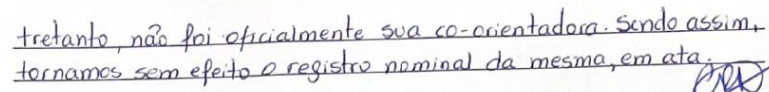 tretanto, não foi oficialmente sua co-orientadora. Sendo assim,
tornamos sem efeito o registro nominal da mesma, em ata.